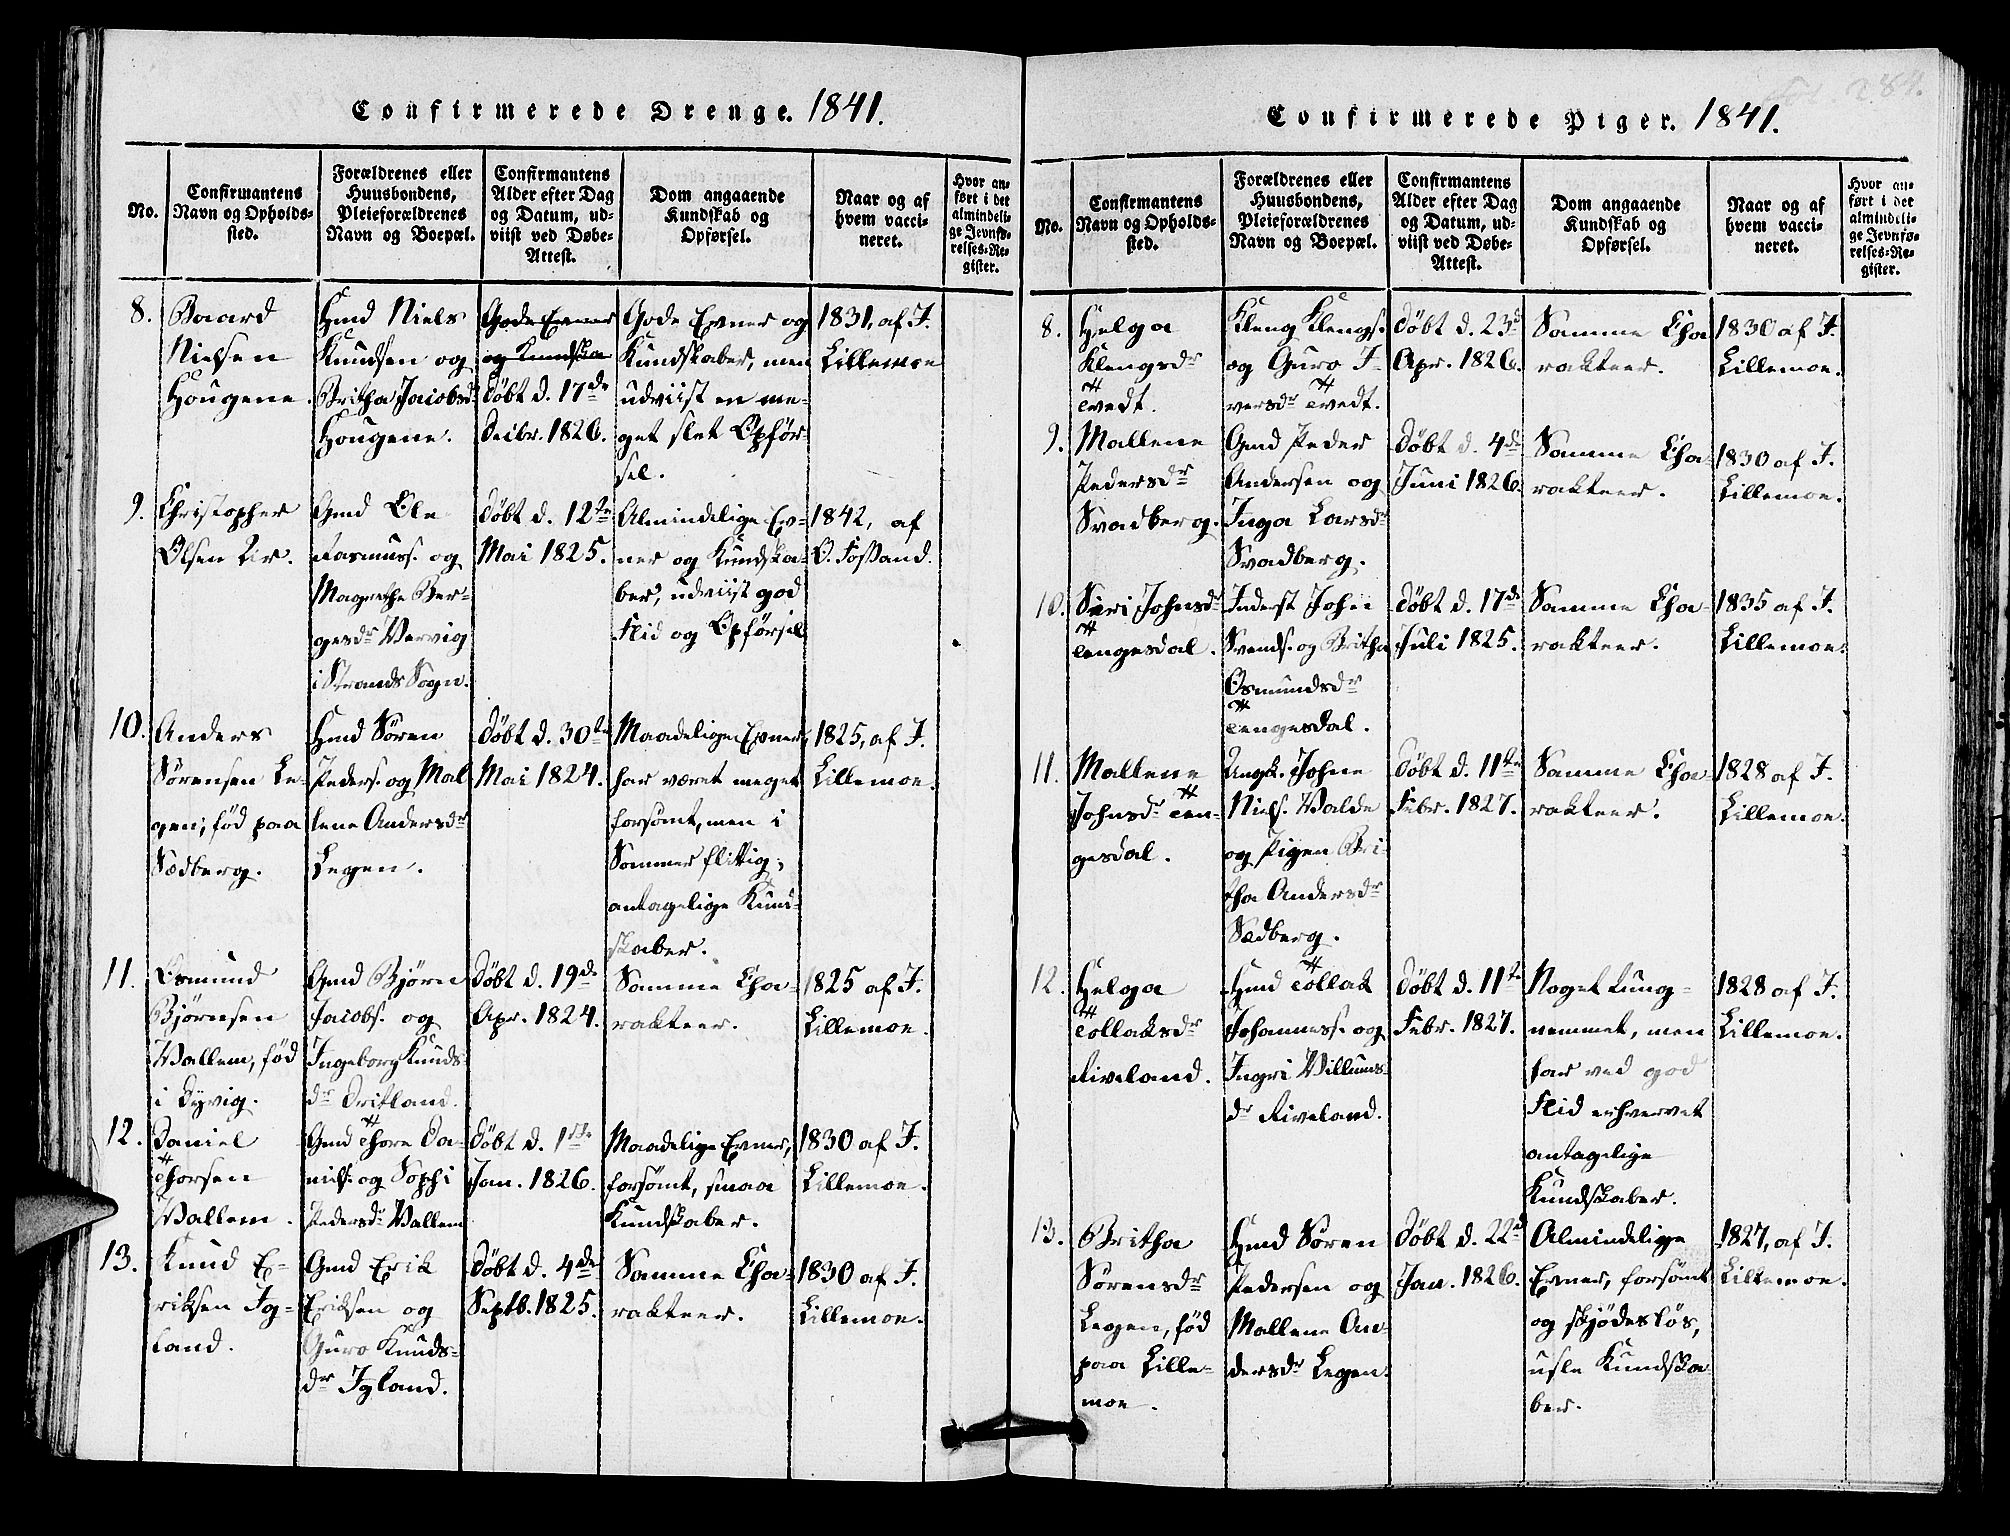 Confirmerede Drenge. 1841.
No.
Confirmantens
Navn og Opholds-
sted.
Forældrenes eller
Huusbondens,
Pleieforældrenes
Navn og Boepæl.
Confirmantens
Alder efter Dag
og Datum, ud-
viist ved Døbe-
Attest.
Dom angaaende
Kundskab og
Opførsel.
Naar og af
hvem vacci-
neret.
Hvor an-
ført i det
almindeli-
ge Jevnfø-
relses-Re-
gister.
8.
Baard
Nielsen
Hougene.
Hmd Niels
Knudsen og
Britha Jacobsdr
Hougene.
Gode Evner
og Kundska
Døbt d. 17de
Decbr. 1826.
Gode Evner og
Kundskaber, men
udviist en me-
get slet Opfør-
sel.
1831, af J.
Lillemoe
9.
Christopher
Olsen Lir.
Gmd Ole
Rasmuss. og
Magrethe Ber-
gesdr Vervig
i Strands Sogn.
Døbt d. 12te
Mai 1825.
Almindelige Ev-
ner og Kundska-
ber, udviist god
Flid og Opførsel
1842, af
O. Fossand.
10.
Anders
Sørensen Le-
gen; fød paa
Sedberg.
Hmd Søren
Peders. og Mal
lene Andersdr
Legen.
Døbt d. 30te
Mai 1824.
Maadelige Evner,
har været meget
forsømt, men i
Sommer flittig;
antagelige Kund-
skaber.
1825, af J.
Lillemoe.
11.
Osmund
Bjørnsen
Vallem, fød
i Dyvig.
Gmd Bjørn
Jacobs. og
Ingeborg Knuds-
dr Dritland.
Døbt d. 19de
Apr. 1824.
Samme Cha-
rakteer.
1825 af J.
Lillemoe.
12.
Daniel
Thorsen
Vallem.
Gmd Thore Da-
niels. og Sophi
Pedersdr Vallem
Døbt d. 1ste
Jan. 1826.
Maadelige Evner,
forsømt, smaa
Kundskaber.
1830 af J.
Lillemoe.
13.
Knud E-
riksen Ig-
land.
Gmd Erik
Eriksen og
Guro Knuds-
dr Igland.
Døbt d. 4de
Septb. 1825.
Samme Cha-
rakteer.
1830 af J.
Lillemoe.
284.
Confirmerede Piger. 1841.
No.
Confirmantens
Navn og Opholds-
sted.
Forældrenes eller
Huusbondens,
Pleieforældrenes
Navn og Boepæl.
Confirmantens
Alder efter Dag
og Datum, ud-
viist ved Døbe-
Attest.
Dom angaaende
Kundskab og
Opførsel.
Naar og af
hvem vacci-
neret.
Hvor an-
ført i det
almindeli-
ge Jevnfø-
relses-Re-
gister.
8.
Helga
Klengsdr
Tvedt.
Kleng Klengs.
og Guro I-
versdr Tvedt.
Døbt d. 23d
Apr. 1826.
Samme Cha
rakteer.
1830 af J.
Lillemoe.
9.
Mallene
Pedersdr
Svadberg.
Gmd Peder
Andersen og
Inga Larsdr
Svadberg.
Døbt d. 4de
Juni 1826.
Samme Cha-
rakteer.
1830 af J.
Lillemoe.
10.
Siri Johnsdr
Tengesdal.
Inderst John
Svends. og Britha
Osmundsdr
Tengesdal.
Døbt d. 17de
Juli 1825.
Samme Cha-
rakteer.
1835 af J.
Lillemoe.
11.
Mallene
Johnsdr Ten-
gesdal.
Ungk. Johne
Niels. Valde
og Pigen Bri-
tha Andersdr
Sedberg.
Døbt d. 11te
Febr. 1827.
Samme Cha-
rakteer.
1828 af J.
Lillemoe.
12.
Helga
Tollaksdr
Riveland.
Hmd Tollak
Johanness. og
Ingri Villums-
dr Riveland.
Døbt d. 11te
Febr. 1827.
Noget tung-
nemmet, men
har ved god
Flid erhvervet
antagelige
Kundskaber.
1828 af J.
Lillemoe.
13.
Britha
Sørensdr
Legen, fød
paa Lille-
moe.
Hmd Søren
Pedersen og
Mallene An-
dersdr Legen.
Døbt d. 22d
Jan. 1826.
Almindelige
Evner, forsømt
og skjødesløs,
usle Kundska
ber.
1827, af J.
Lillemoe.